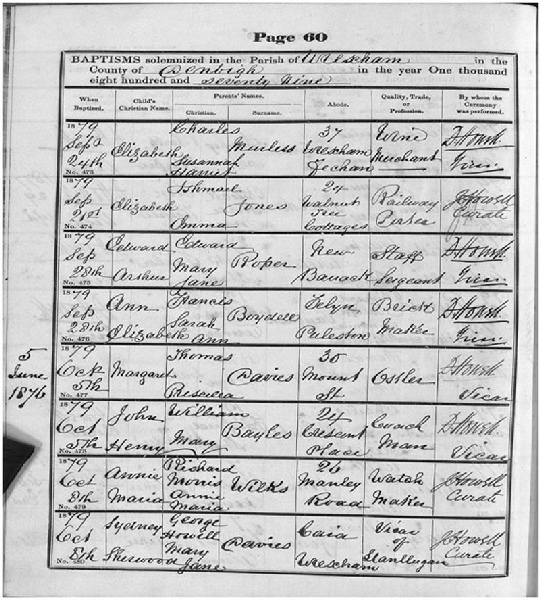 Page 60
BAPTISMS solemnized in the Parish of Wrexham in the
County of Denbigh in the year One thousand
eight hundred and seventy nine
When Baptized. Child's Christian Name. Parents' Names. Christian. Surname. Abode. Quality, Trade, or Profession. By whom the Ceremony was performed.
1879 Charles 37 Wine D Howell
Sep Elizabeth Susannah Wrexham Merchant Vicar
24th Harriet Fechan
No. 473
1879 Ishmael 24 Railway J Howell
Sep Elizabeth Jones Walnut Tree Porter Curate
21st Emma Cottages
No. 474
1879 Edward Edward New Staff D Howell
Sep Mary Roper
28th Arthur Jane Barrack Sergeant Vicar
No. 475
1879 Ann Francis Brick D Howell
Sep Sarah Boydell
28th Elizabeth Ann Puleston Maker Vicar
No. 476
5 June 1876
1879 Thomas 30 D Howell
Oct Margaret Davies Mount Ostler
5th Priscilla St Vicar
No. 477
1879 John William 24 Coach D Howell
Oct Bayles Crescent
5th Henry Mary Place Man Vicar
No. 478
1879 Annie Richard 26 Watch J Howell
Oct Morris Wilks Manley
8th Maria Annie Maria Road Maker Curate
No. 479
1879 Sydney George Caia Vicar J Howell
Oct Howell Davies of
8th Sherwood Mary Jane Wrexham Curate
No. 480